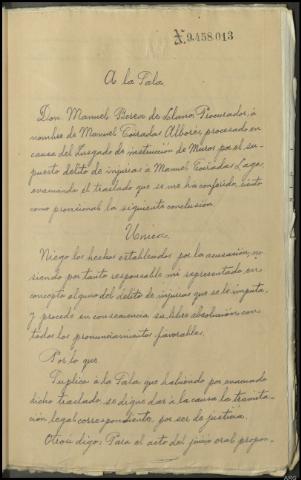 9.458.013
A la Sala
Don Manuel Berea de Llano, Procurador, á
nombre de Manuel Toirada Albores, procesado en
causa del Juzgado de instrucción de Muros por el su-
puesto delito de injurias á Manuel Toirada Lago,
evacuando el traslado que se me ha conferido, sento
como provisional la siguiente conclusión.
Unica
Niego los hechos establecidos por la acusación, no
siendo por tanto responsable mi representado en
concepto alguno del delito de injurias que se le imputa
y procede en consecuencia su libre absolución con
todos los pronunciamientos favorables.
Por lo que
Suplico á la Sala que habiendo por evacuado
dicho traslado, se digne dar á la causa la tramita-
ción legal correspondiente, por ser de justicia.
Otrosí digo: Para el acto del juicio oral propon-